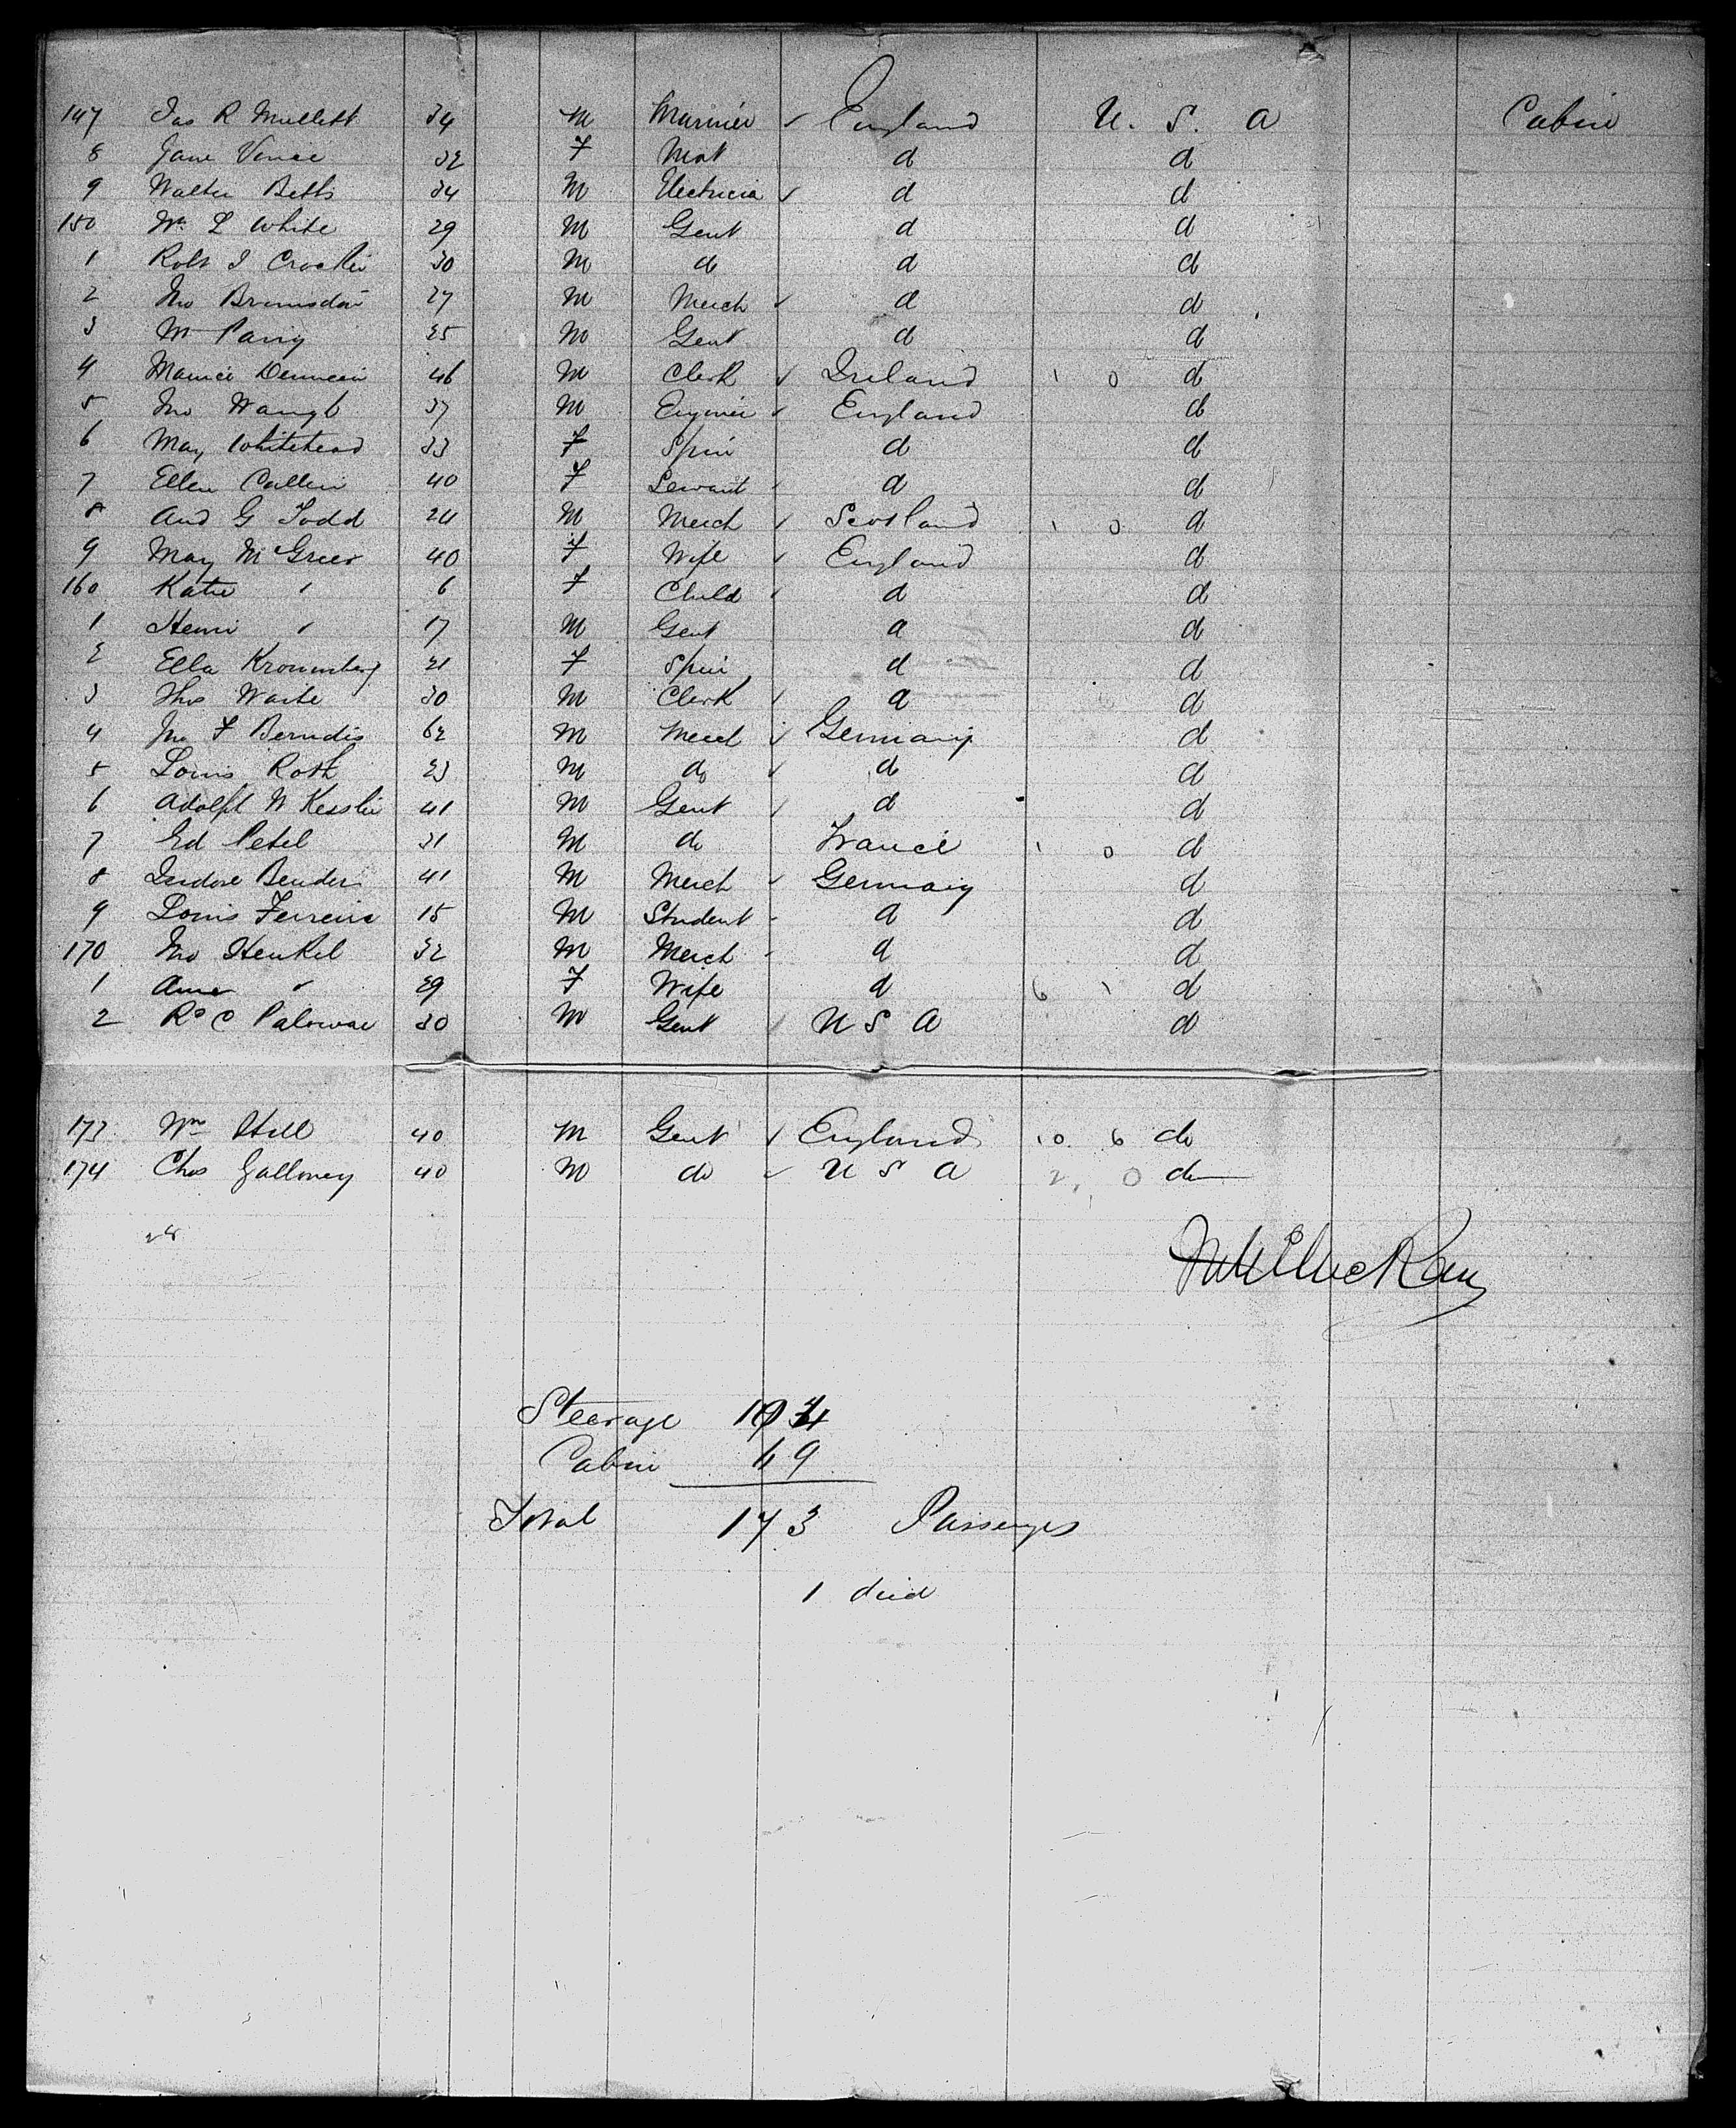 147 Jas R Mullett 34 M Mariner ✓ England U. S. A Cabin
8 Jane Vence 32 F Mat d d
9 Walter Betts 34 M Electricia ✓ d d
150 Wm L White 29 M Gent d d
1 Robt J Crocker 30 M do d d
2 Jno Brimsdon 27 M Merch ✓ d d
3 Wm Parry 25 M Gent d d
4 Maurice 46 M Clerk ✓ Ireland 1 0 d
5 Jno Waugh 37 M Engineer ✓ England d
6 May Whitehead 33 F Spin d d
7 Ellen Cullen 40 F Servant d d
8 And G Todd 24 M Merch ✓ Scotland 1 0 d
9 May McGreer 40 F Wife ✓ England d
160 Katie " 6 F Child d d
1 Henri " 17 M Gent d d
2 Ella Kronenberg 21 F Spin d d
3 Thos Waite 30 M Clerk d d
4 Jno F Berndis 62 M Merch ✓ Germany d
5 Louis Roth 23 M do ✓ d d
6 Adolph W Kessler 41 M Gent d d
7 Ed Petel 31 M do France 1 0 d
8 Isidore Bender 41 M Merch ✓ Germany d
9 Louis Ferreira 15 M Student d d
170 Jno Henkel 32 M Merch d d
1 Anne " 29 F Wife d 6 1 d
2 Ro C 30 M Gent U S A d
173 Wm Hill 40 M Gent ✓ England 10 6 do
174 Chas Galloney 40 M do ✓ U S A 2 0 do
28
Steerage 104
Cabin 69
Total 173 Passengers
1 died